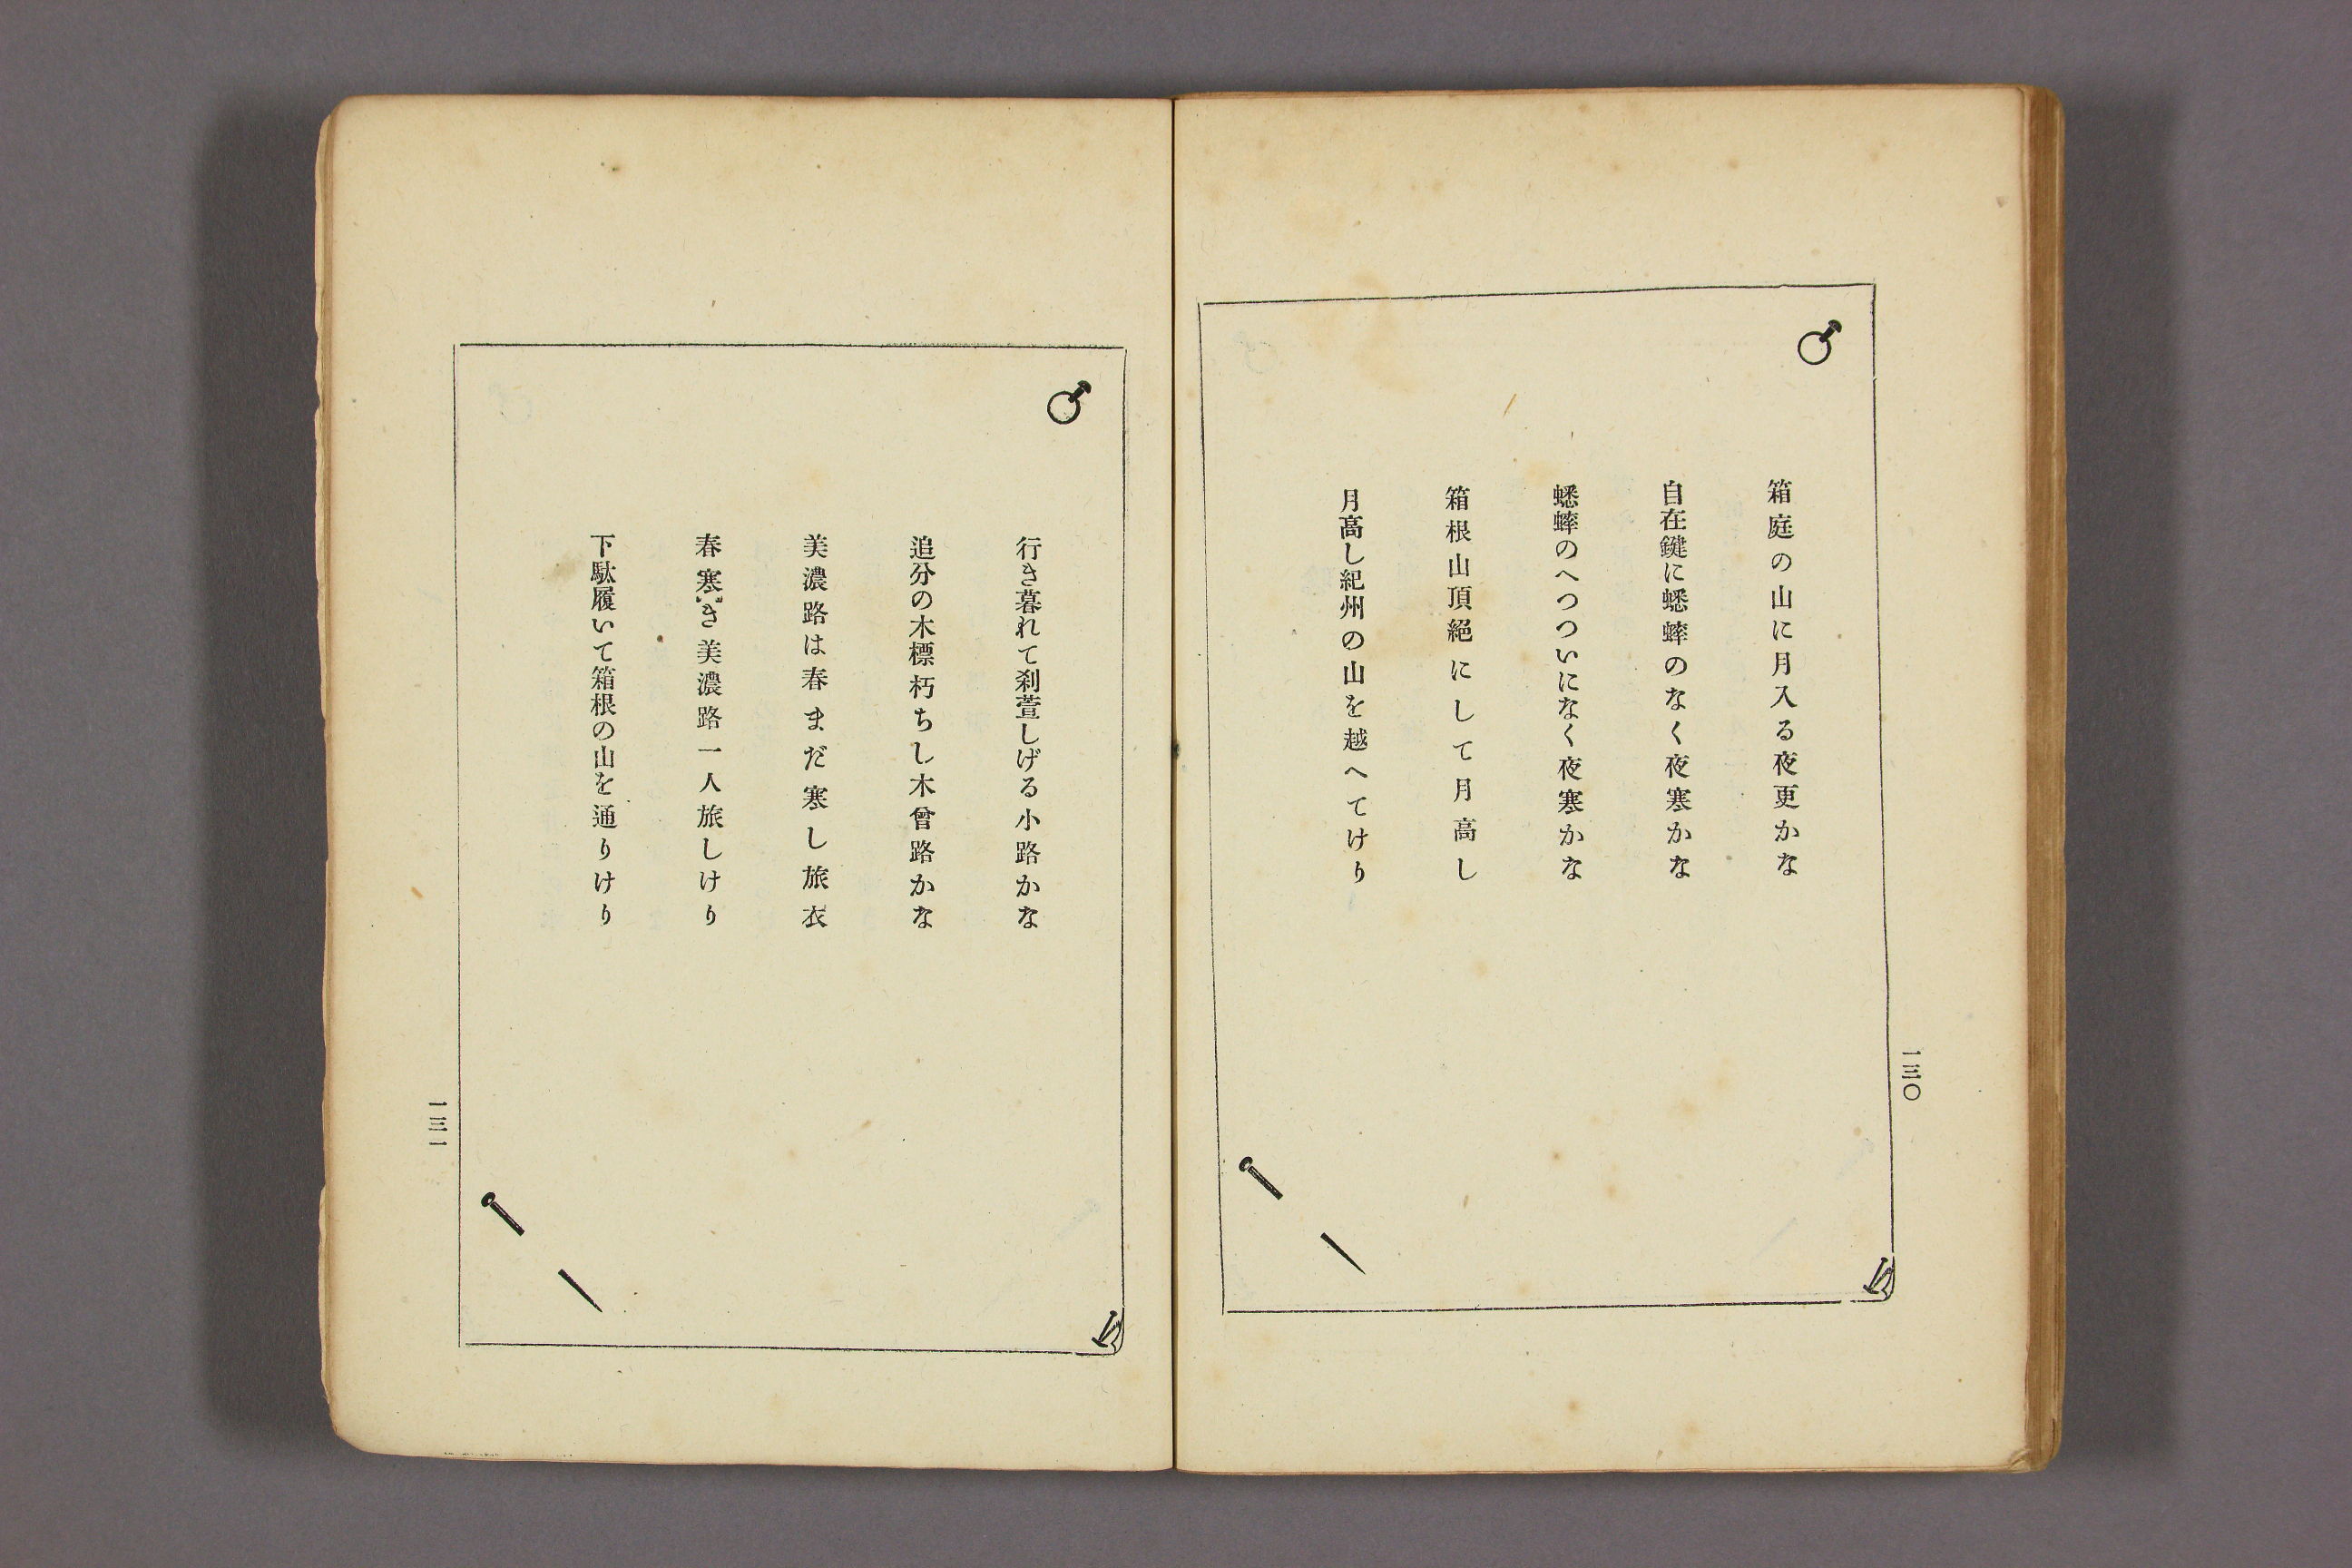 箱庭の山に月入る夜更かな
自在鍵に蟋蟀のなく夜寒かな
蟋蟀のへつついになく夜寒かな
箱根山頂絕にして月高し
月高し紀州の山を越へてけり
一三〇
行き暮れて刹萱しげる小路かな
追分の木標朽ちし木曾路かな
美濃路は春まだ寒し旅衣
春寒き美濃路一人旅しけり
下駄履いて箱根の山を通りけり
一三一